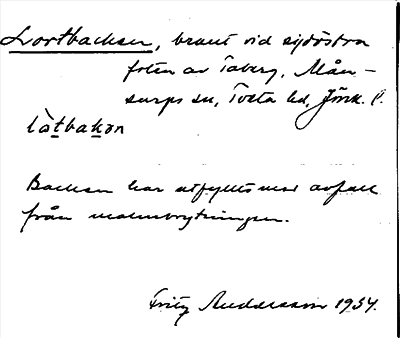 Lortbacken, brant vid sydöstra
foten av Taberg, Mån-
sarps sn, Tveta hd, Jönk. l.
lòt̠bak̠ən
Backen har utfyllts med avfall
från malmbrytningen.
Fritz Andersson 1934.